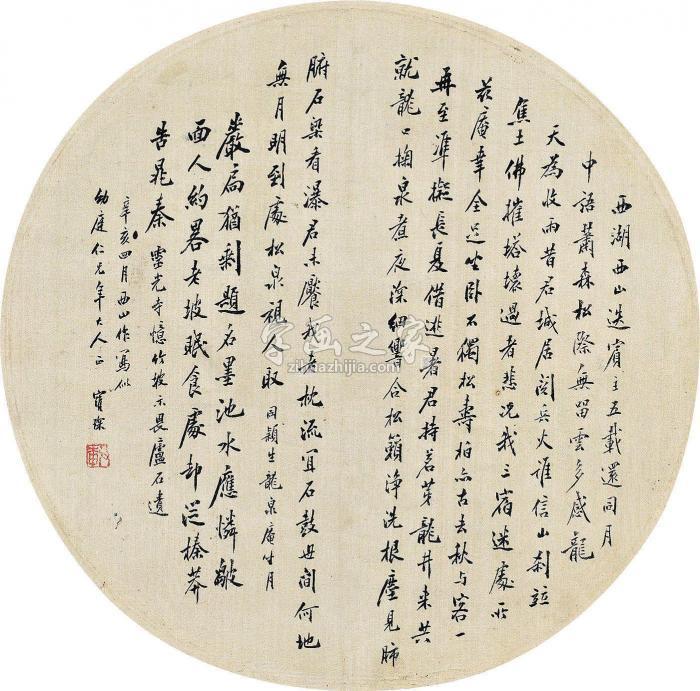 西湖西山迭賓主五載還同月
中語蕭森松際無留雲多感龍
天為收雨昔君城居閱兵火誰信山剎竝
焦土佛摧塔壞過者悲況我三宿迷處所
茲庵幸全足坐臥不獨松壽柏亦古去秋与客一
再至準擬長夏借逃暑君持茗芽龍井来共
就龍口掬泉煮夜深細響合松籟淨洗根塵見肺
腑石梁看瀑君未饜我老枕流宜石鼓毋間何地
無月明到處松泉視人取 同穎生龍泉庵對月
巖扃猶剩題名墨池水應憐皺
面人約略老坡眠食處却從榛莽
告晁秦 靈光寺憶竹坡示畏廬石遺
辛亥四月西山作寫似
幼庭仁兄年大人正 寶琛
字画之家
zihuazhijia.com